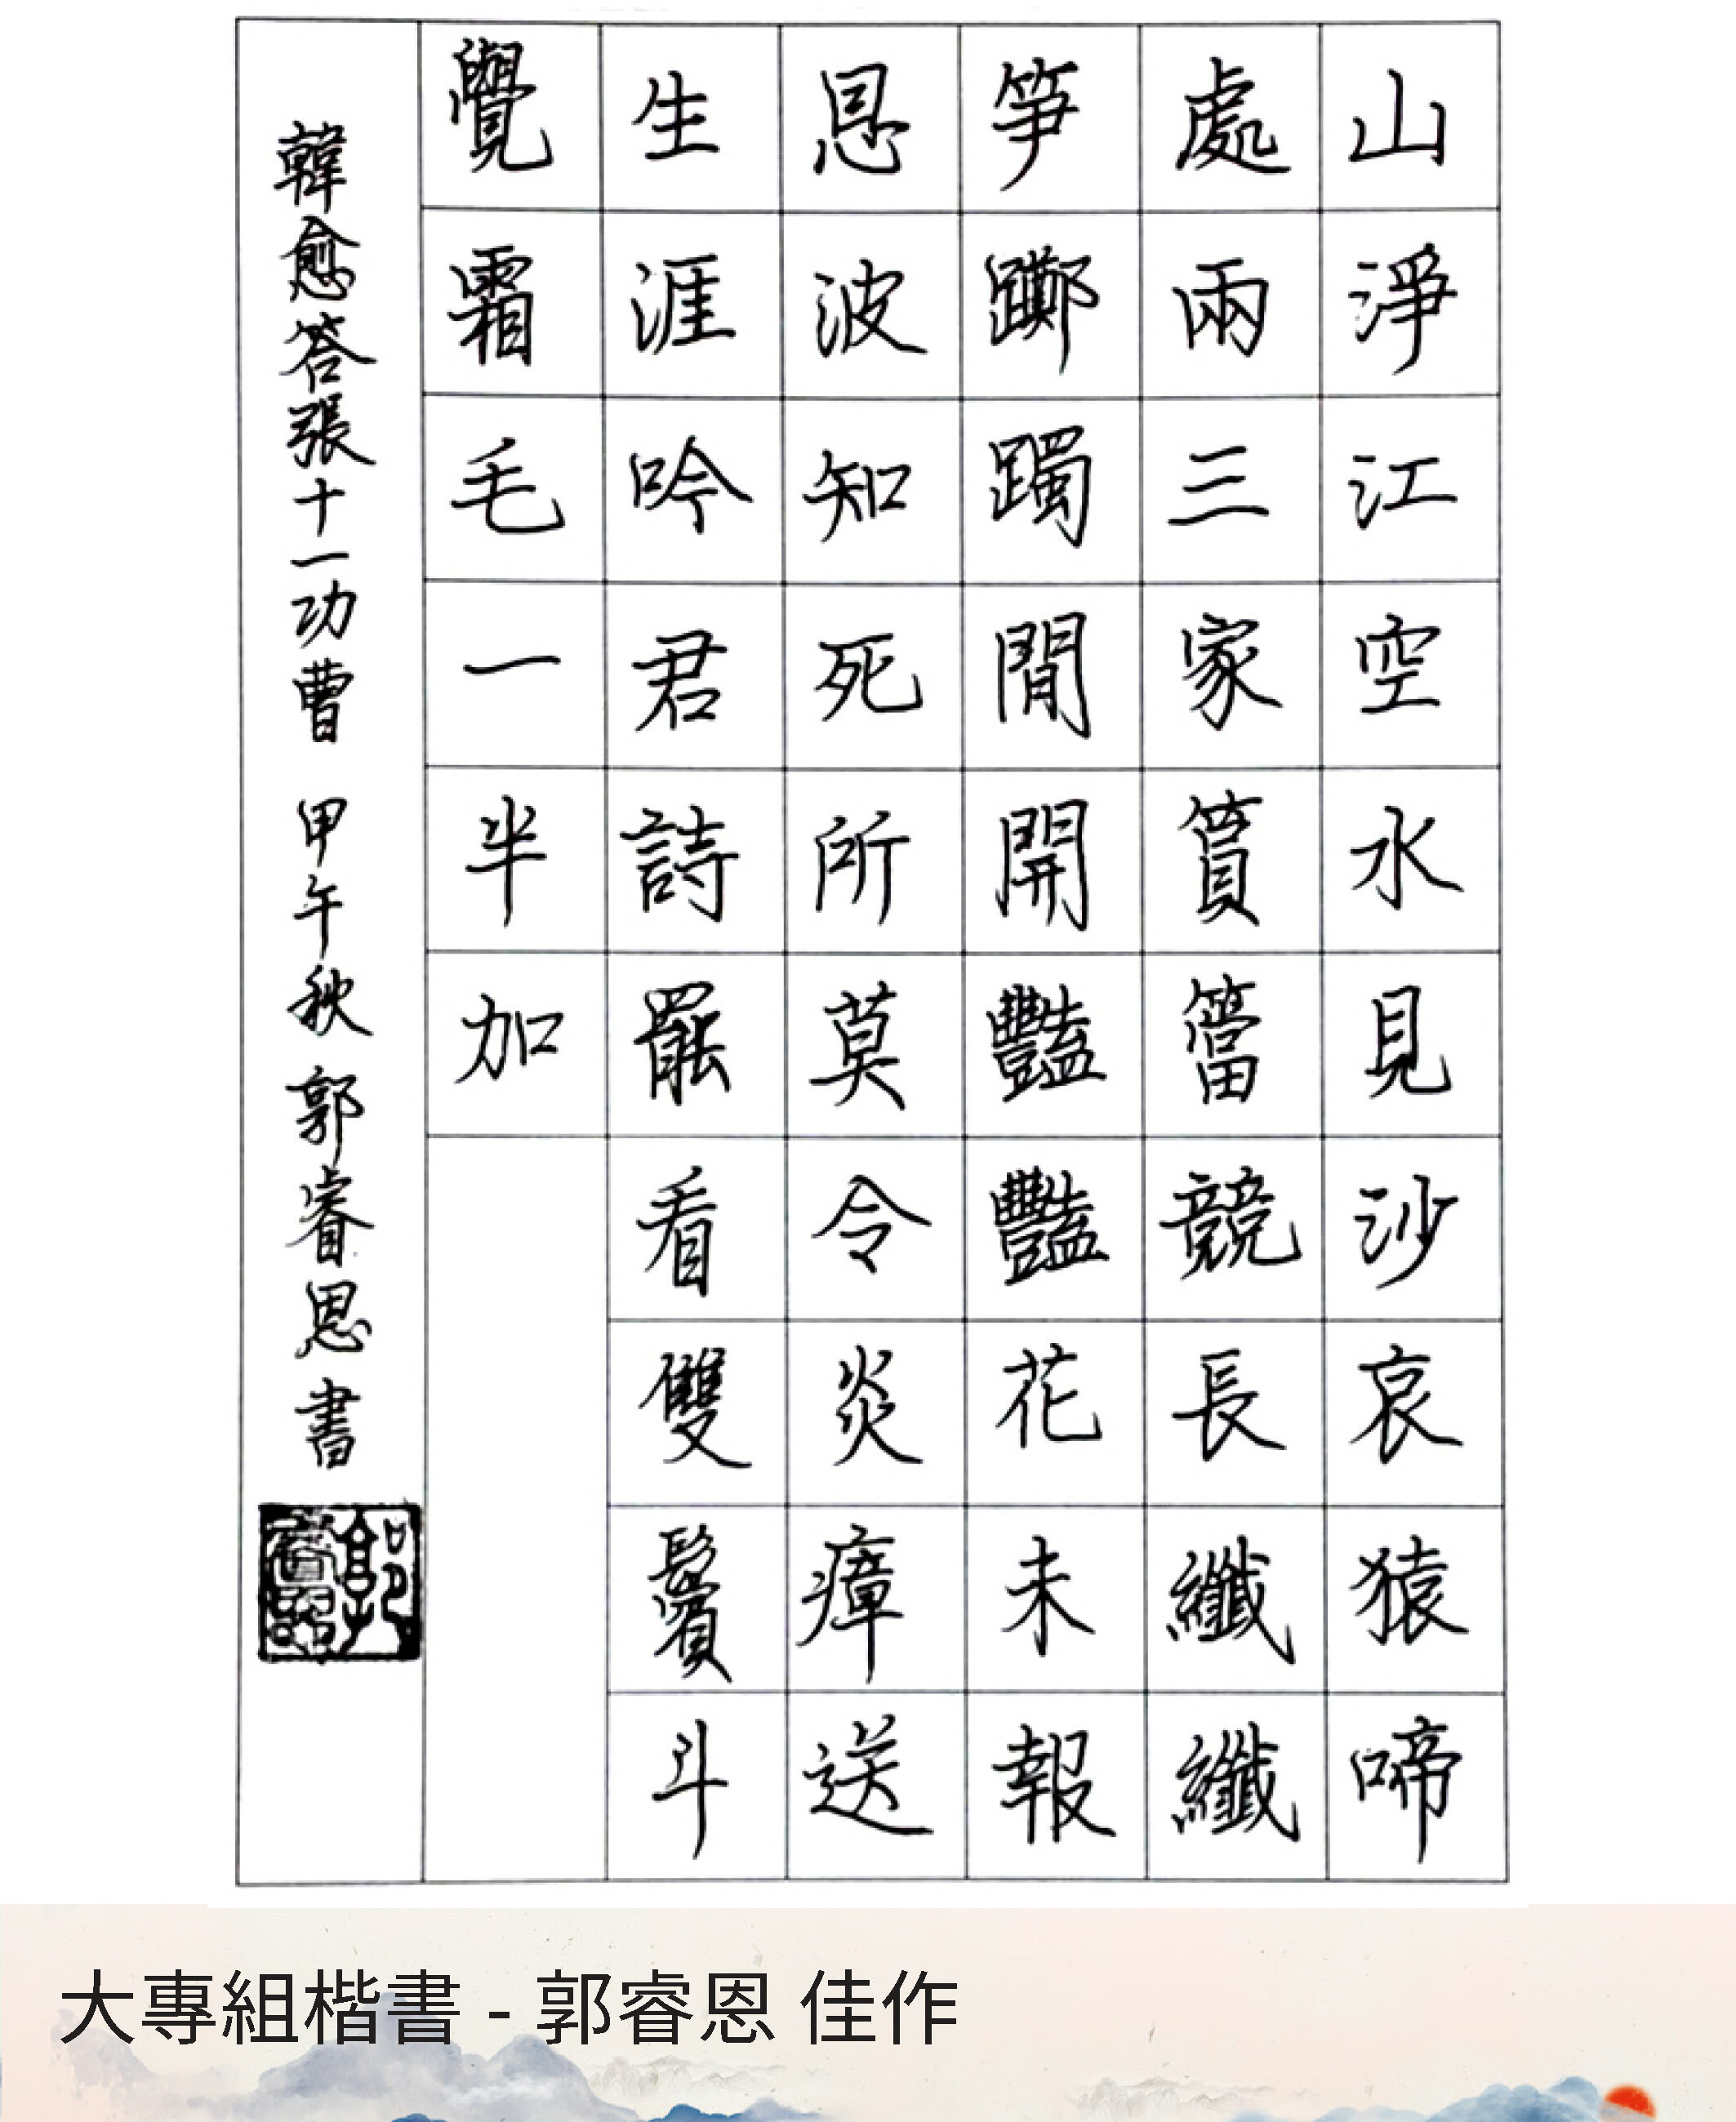 山淨江空水見沙哀猿啼
處兩三家篔簹競長纖纖
笋躑躅閒開豔豔花未報
恩波知死所莫令炎瘴送
生涯吟君詩罷看雙鬢斗
覺霜毛一半加
韓愈答張十一功曹 甲午秋 郭睿恩書
大專組楷書 - 郭睿恩 佳作